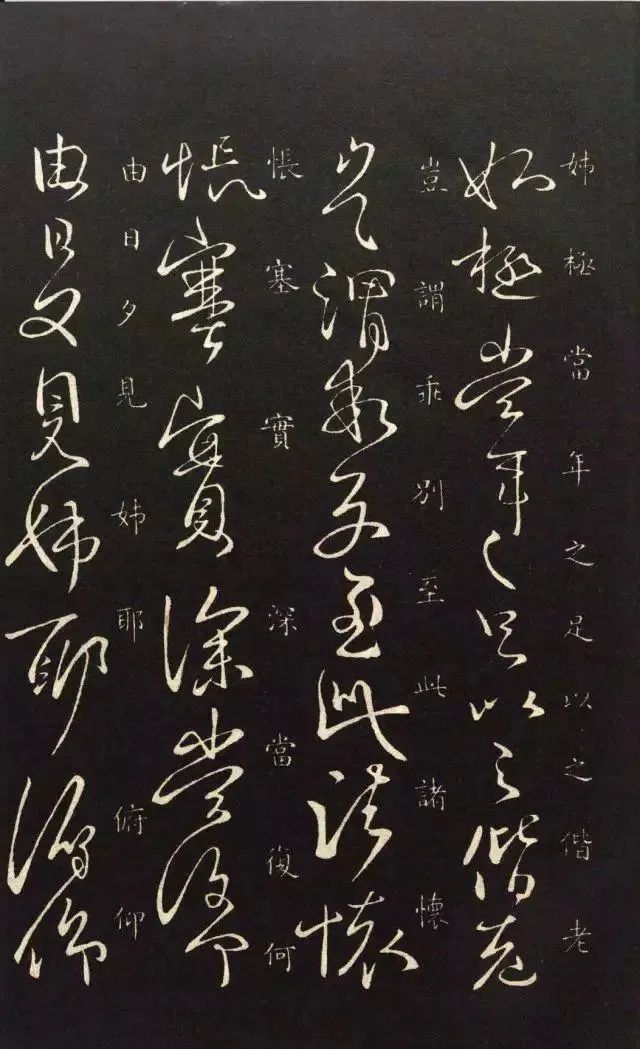 姊極當年之足以之偕老
姊極當年之足以之偕老
豈謂乖別至此諸懷
豈謂乖別至此諸懷
悵塞實深當復何
悵塞實深當復何
由日夕見姊耶俯仰
由日夕見姊耶俯仰